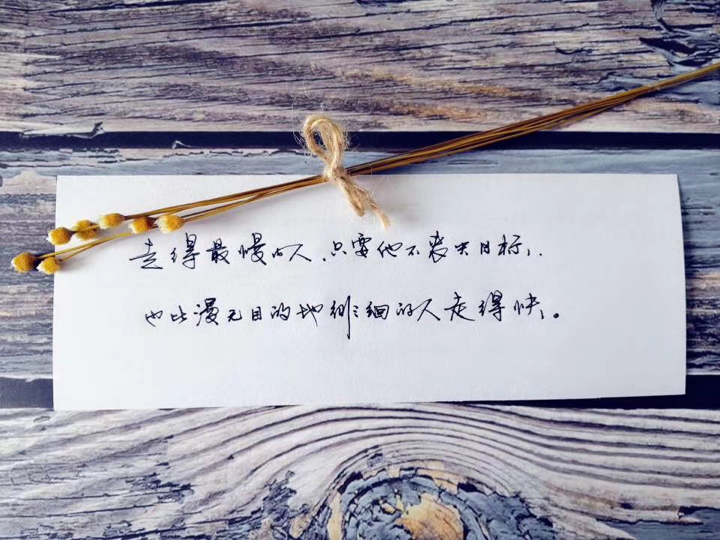 走得最慢的人,只要他不丧失目标,
也比漫无目的地徘徊的人走得快。